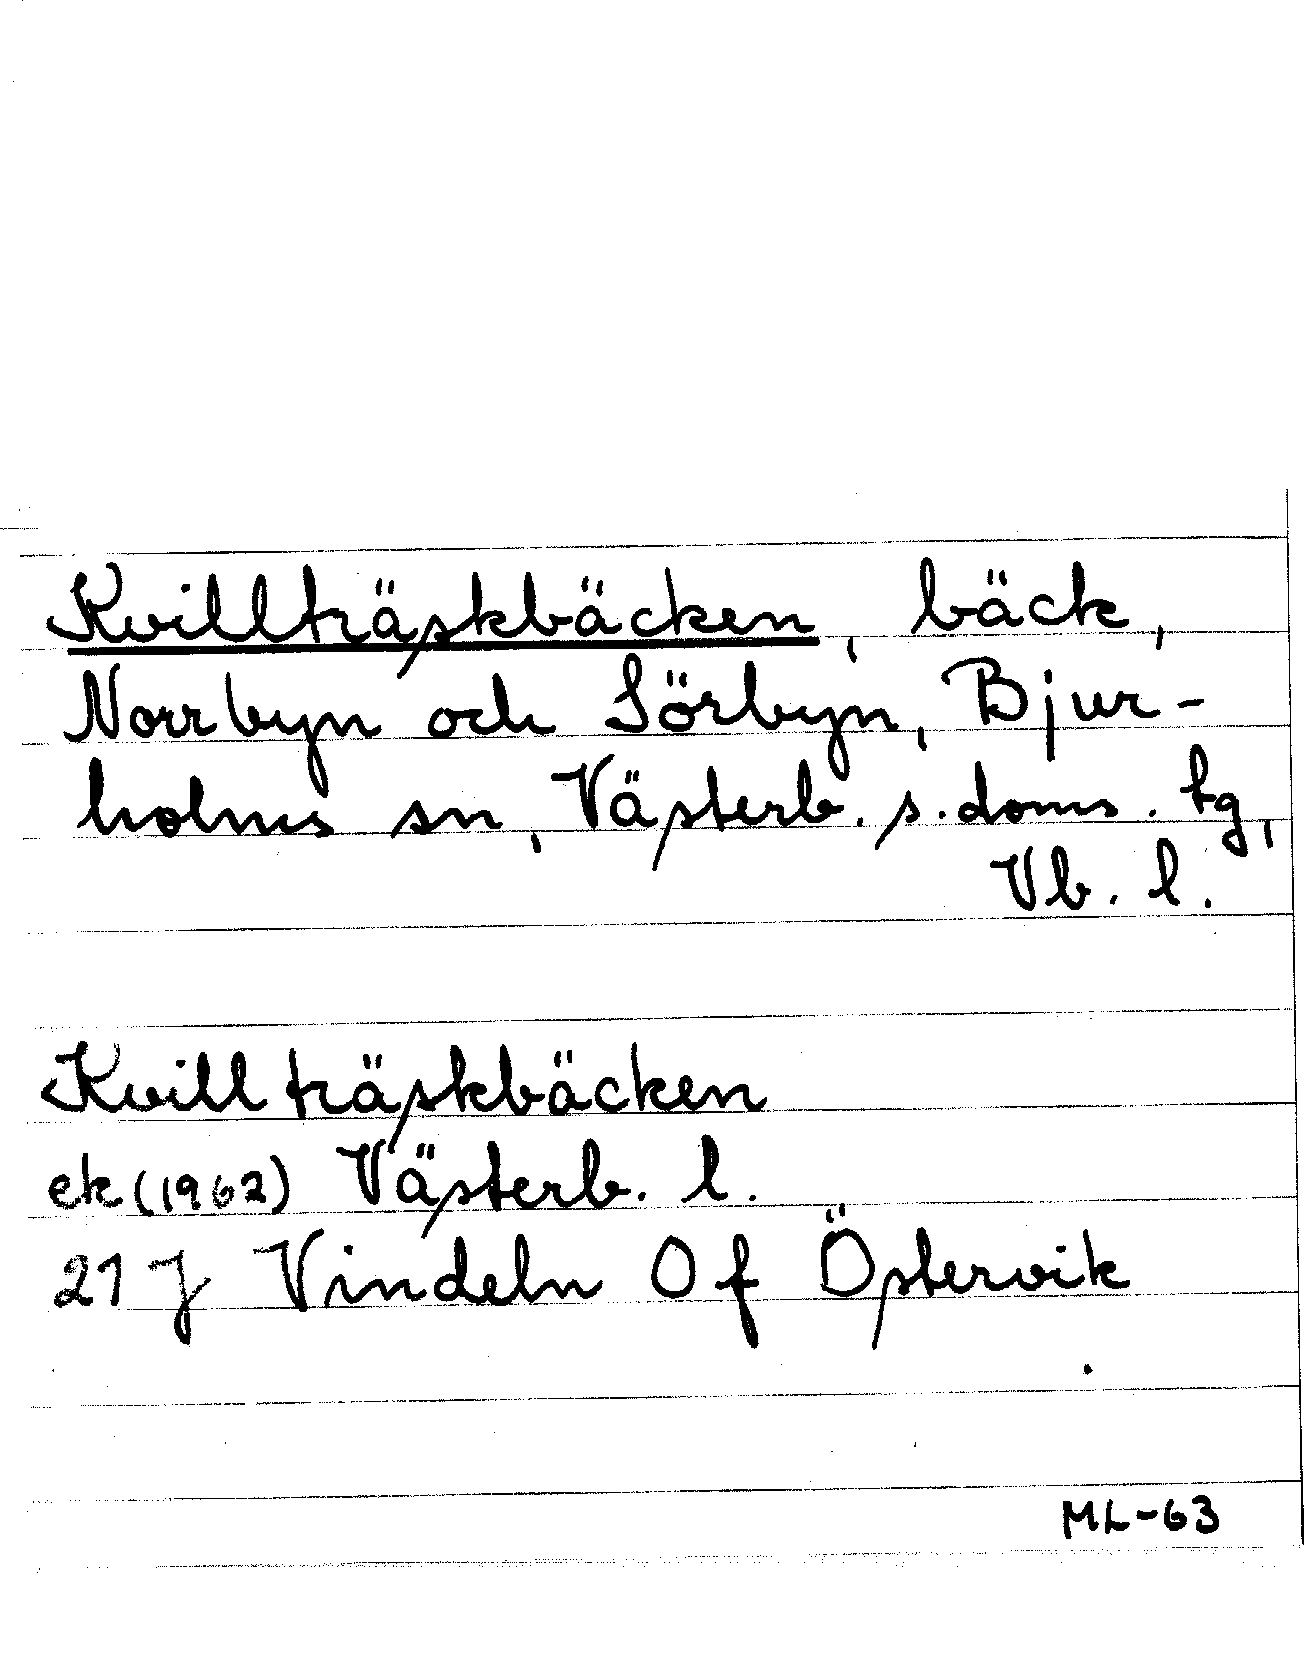 Kvillträskbäcken, bäck,
Norrbyn och Sörbyn, Bjur-
holms sn, Västerb. s. doms. tg,
Vb. l.
Kvillträskbäcken
ek (1962) Västerb. l.
21 J Vindeln 0 f Östervik
ML-63